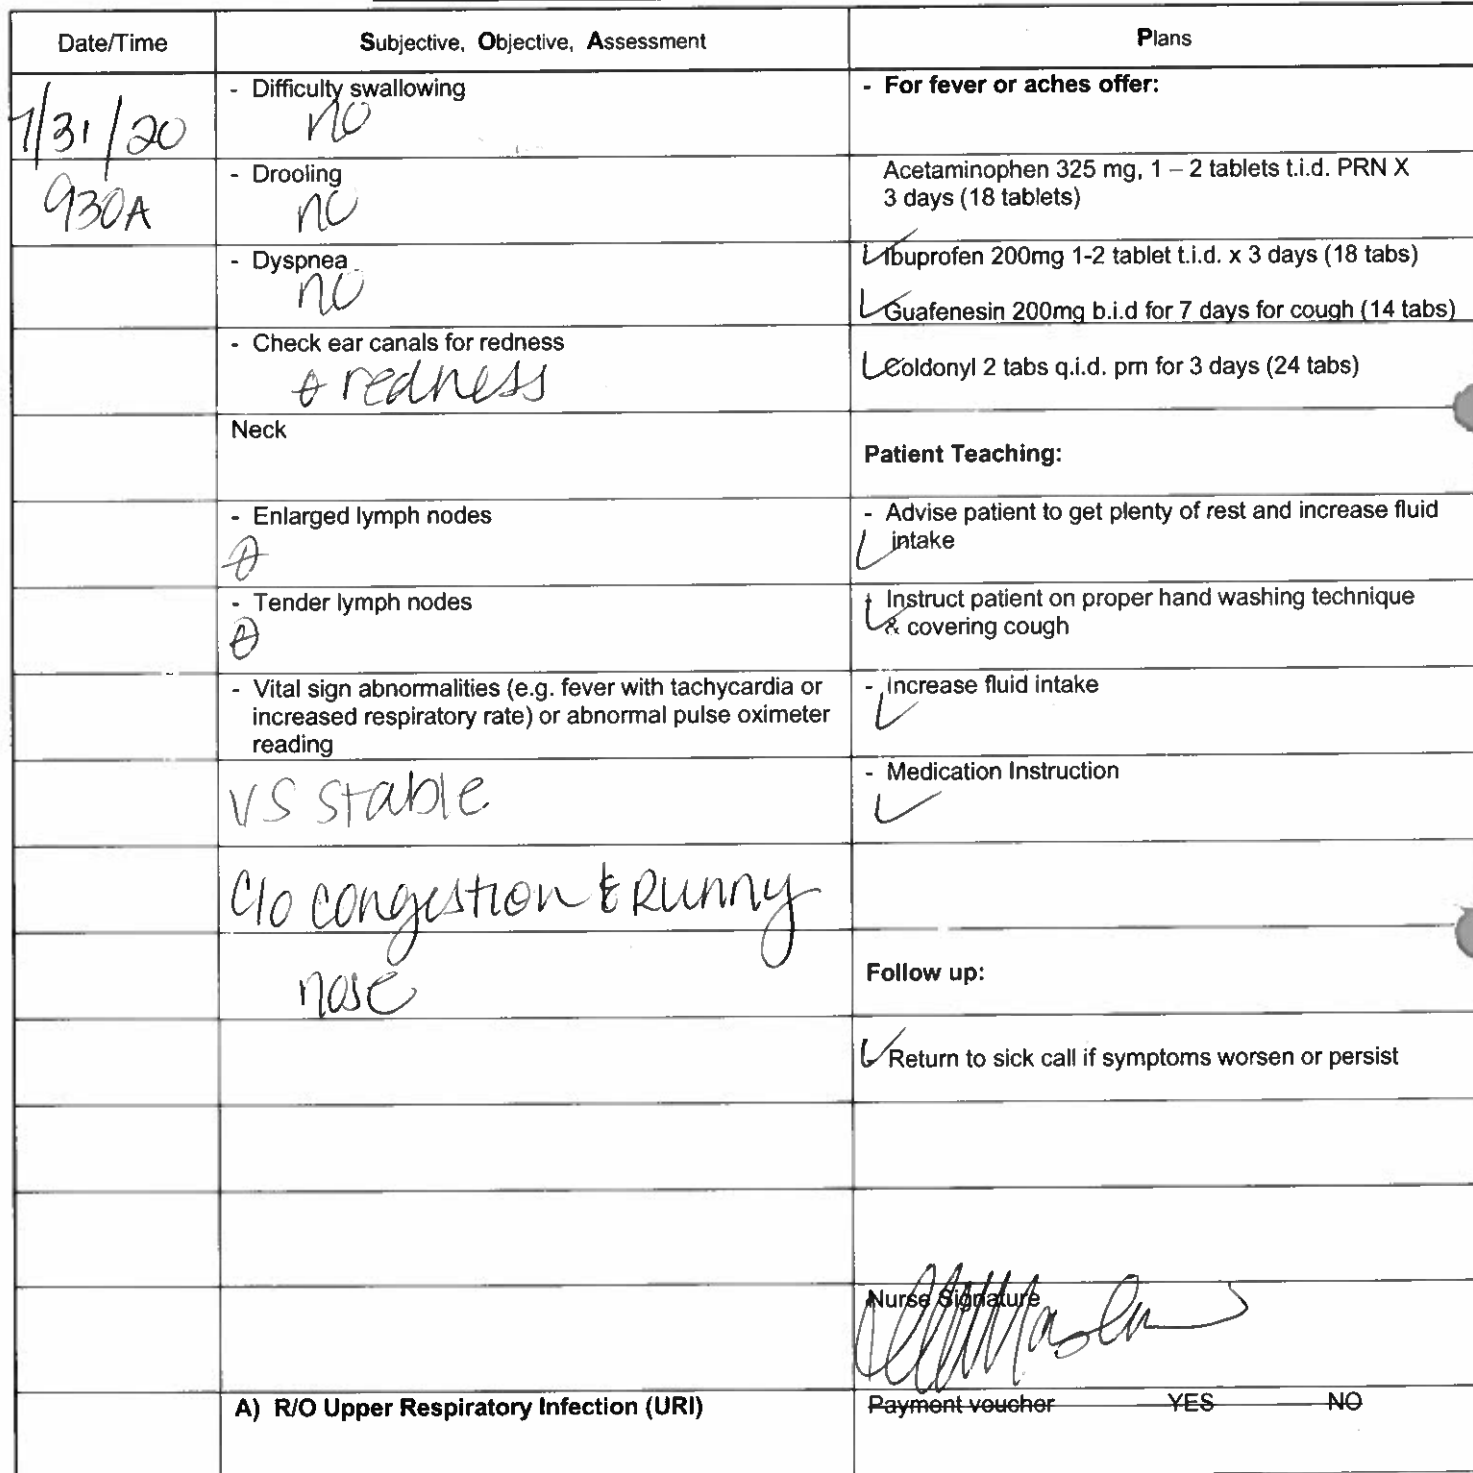 Date/Time Subjective, Objective, Assessment Plans
7/31/20
930A
- Difficulty swallowing
no
- For fever or aches offer:
- Drooling
no
Acetaminophen 325 mg, 1 – 2 tablets t.i.d. PRN X
3 days (18 tablets)
- Dyspnea
no
Ibuprofen 200mg 1-2 tablet t.i.d. x 3 days (18 tabs)
Guafenesin 200mg b.i.d for 7 days for cough (14 tabs)
- Check ear canals for redness
redness
Coldonyl 2 tabs q.i.d. prn for 3 days (24 tabs)
Neck
Patient Teaching:
- Enlarged lymph nodes
- Advise patient to get plenty of rest and increase fluid
intake
- Tender lymph nodes
Instruct patient on proper hand washing technique
& covering cough
- Vital sign abnormalities (e.g. fever with tachycardia or
increased respiratory rate) or abnormal pulse oximeter
reading
- Increase fluid intake
VS stable
- Medication Instruction
C/o congestion & Runny
nose
Follow up:
Return to sick call if symptoms worsen or persist
Nurse Signature
A) R/O Upper Respiratory Infection (URI)
Payment voucher YES NO